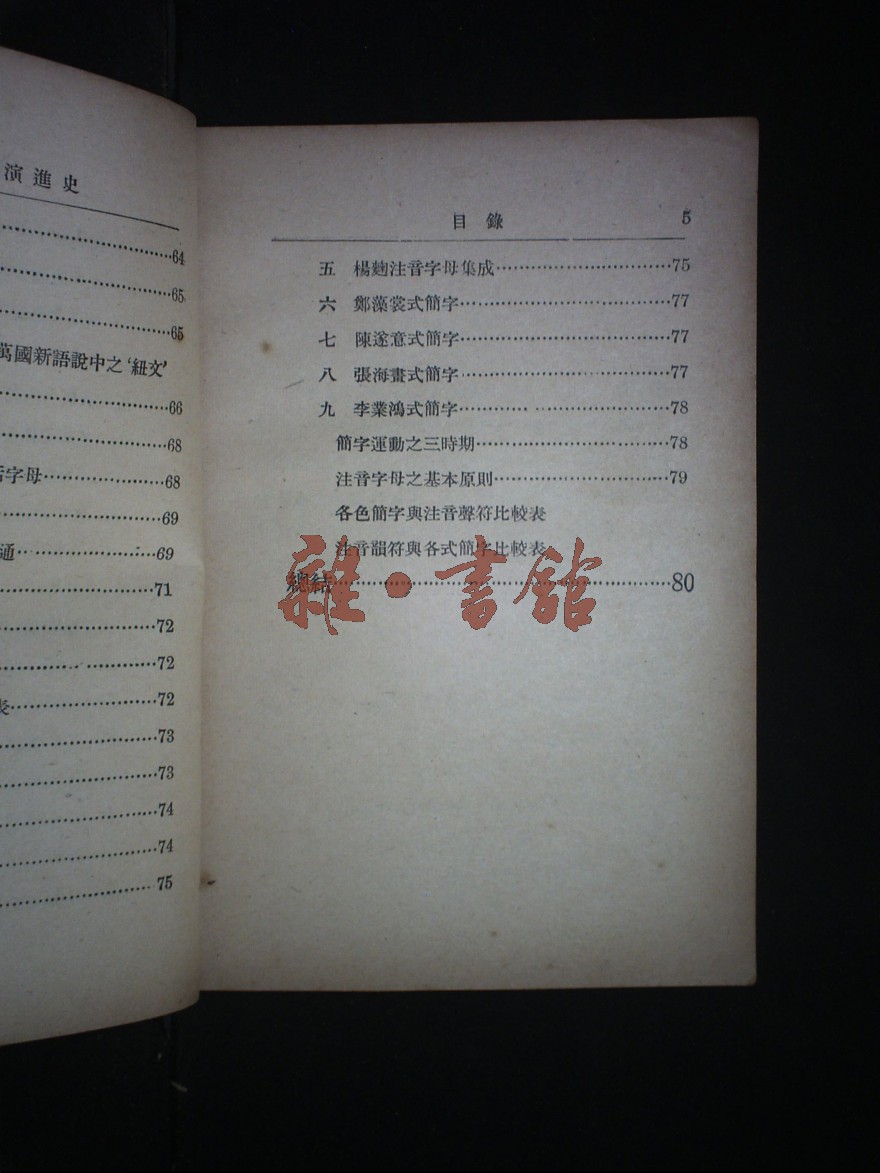 演進史
64
65
65
萬國新語說中之‘紐文’
66
68
字母……………68
69
通……………69
71
72
72
表……………72
73
73
74
74
75
目錄 5
五 楊麴注音字母集成……………75
六 鄭藻裳式簡字……………77
七 陳遂意式簡字……………77
八 張海畫式簡字……………77
九 李業鴻式簡字……………78
簡字運動之三時期……………78
注音字母之基本原則……………79
各色簡字與注音聲符比較表
注音韻符與各式簡字比較表
總結……………80
雜·書館